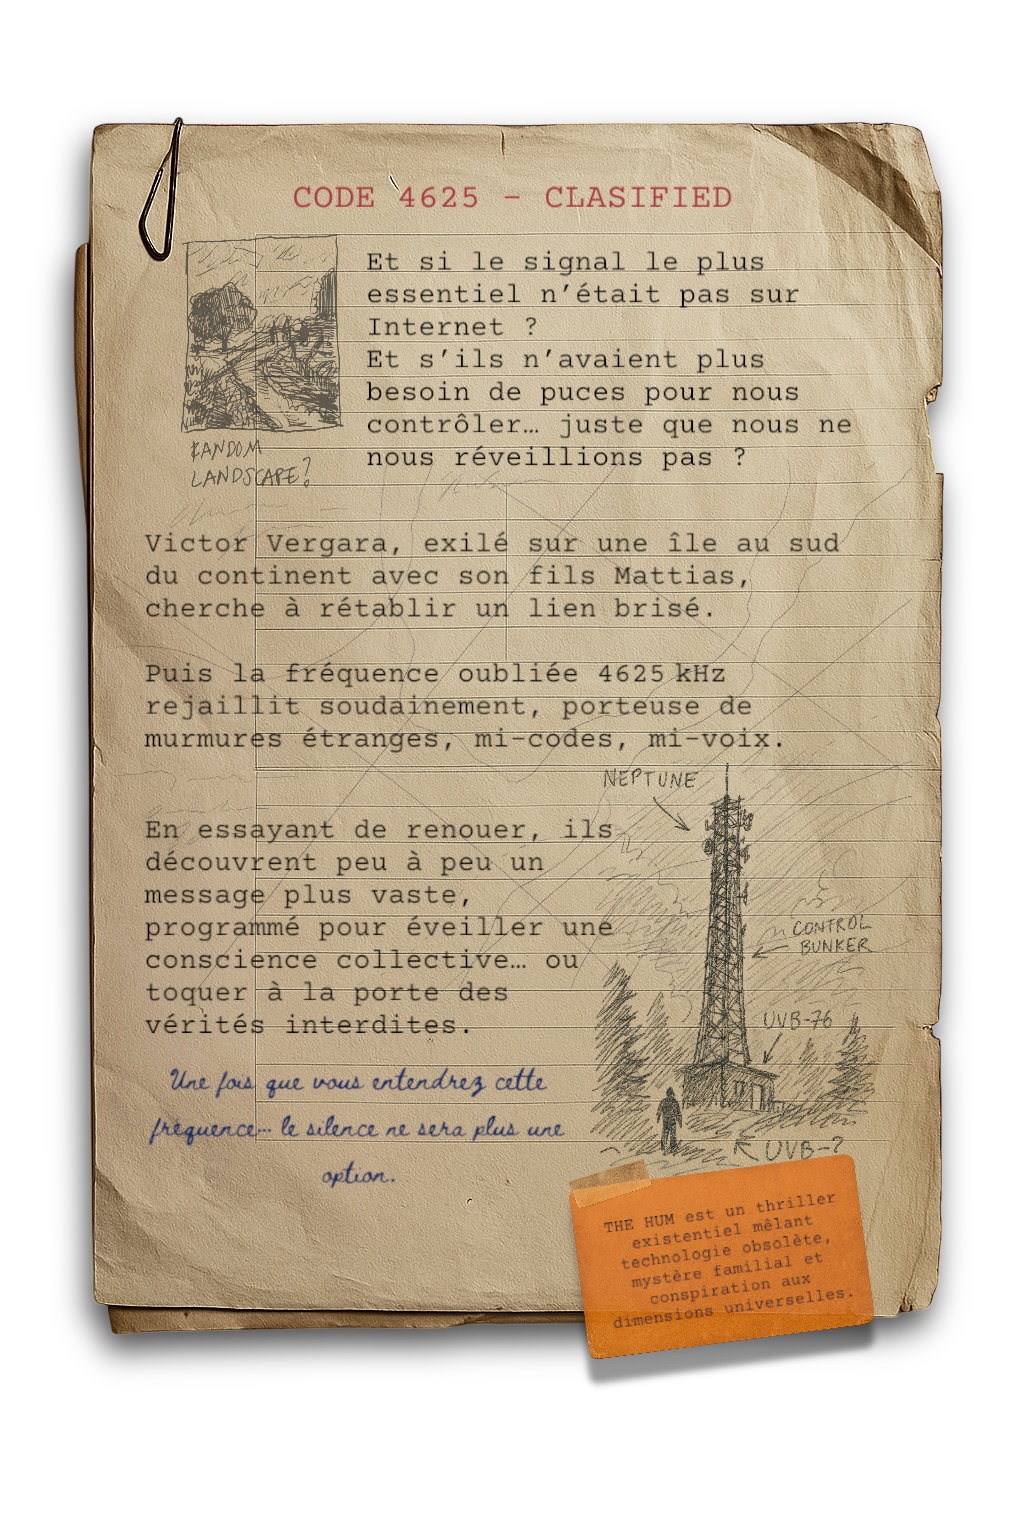 CODE 4625 – CLASIFIED
Et si le signal le plus
essentiel n’était pas sur
Internet ?
Et s’ils n’avaient plus
besoin de puces pour nous
contrôler… juste que nous ne
nous réveillions pas ?
RANDOM
LANDSCAPE?
Victor Vergara, exilé sur une île au sud
du continent avec son fils Mattias,
cherche à rétablir un lien brisé.
Puis la fréquence oubliée 4625 kHz
rejaillit soudainement, porteuse de
murmures étranges, mi-codes, mi-voix.
NEPTUNE
En essayant de renouer, ils
découvrent peu à peu un
message plus vaste,
programmé pour éveiller une
conscience collective… ou
toquer à la porte des
vérités interdites.
CONTROL
BUNKER
UVB-76
UVB-?
Une fois que vous entendrez cette
fréquence… le silence ne sera plus une
option.
THE HUM est un thriller
existentiel mêlant
technologie obsolète,
mystère familial et
conspiration aux
dimensions universelles.